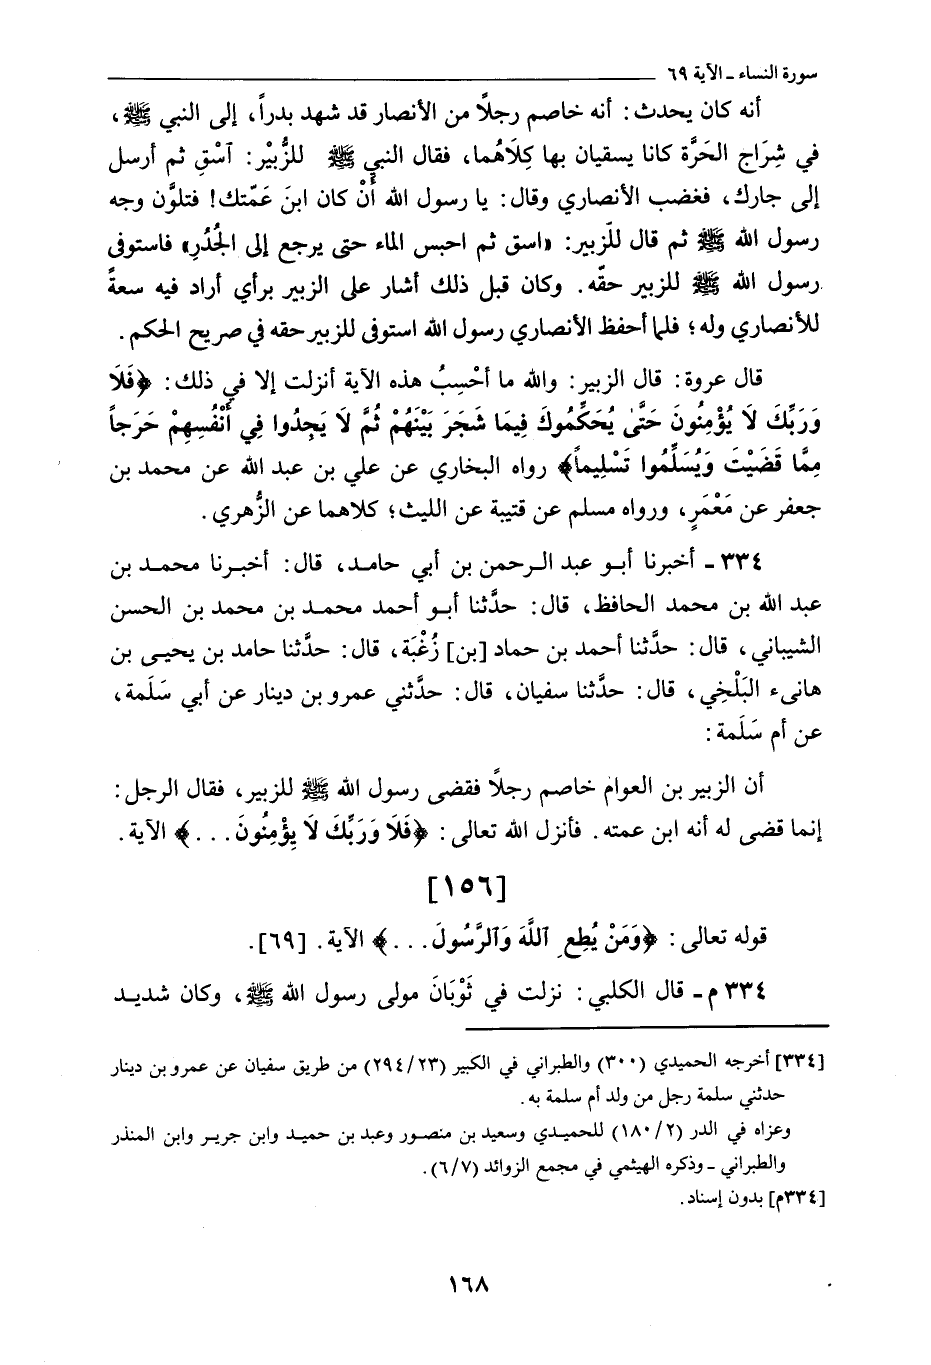 سورة النساء ـ الآية ٦٩
أنه كان يحدث: أنه خاصم رجلاً من الأنصار قد شهد بدراً، إلى النبي ﷺ،
في شِرَاج الحَرَّة كانا يسقيان بها كِلَاهُما، فقال النبي ﷺ للزُّبيْر: آسْقِ ثم أرسل
إلى جارك، فغضب الأنصاري وقال: يا رسول الله أَنْ كان ابنَ عَمّتك! فتلوَّن وجه
رسول الله ﷺ ثم قال للّزبير: «اسق ثم احبس الماء حتى يرجع إلى الجُدُرِ» فاستوفى
رسول الله ﷺ للزبير حقّه. وكان قبل ذلك أشار على الزبير برأي أراد فيه سعةً
للأنصاري وله؛ فلما أحفظ الأنصاري رسول الله استوفى للزبير حقه في صريح الحكم.
قال عروة: قال الزبير: والله ما أحْسِبُ هذه الآية أنزلت إلا في ذلك: ﴿فَلَا
وَرَبِّكَ لَا يُؤْمِنُونَ حَتَّىٰ يُحَكِّمُوكَ فِيمَا شَجَرَ بَيْنَهُمْ ثُمَّ لَا يَجِدُوا فِي أَنْفُسِهِمْ حَرَجاً
مِمَّا قَضَيْتَ وَيُسَلِّمُوا تَسْلِيماً﴾ رواه البخاري عن علي بن عبد الله عن محمد بن
جعفر عن مَعْمَرٍ، ورواه مسلم عن قتيبة عن الليث؛ كلاهما عن الزُّهري.
٣٣٤ ـ أخبرنا أبو عبد الرحمن بن أبي حامد، قال: أخبرنا محمد بن
عبد الله بن محمد الحافظ، قال: حدَّثنا أبو أحمد محمد بن محمد بن الحسن
الشيباني، قال: حدَّثنا أحمد بن حماد [بن] زُغْبَة، قال: حدَّثنا حامد بن يحيى بن
هانىء البَلْخِي، قال: حدَّثنا سفيان، قال: حدَّثني عمرو بن دينار عن أبي سَلَمة،
عن أم سَلَمة:
أن الزبير بن العوام خاصم رجلاً فقضى رسول الله ﷺ للزبير، فقال الرجل:
إنما قضى له أنه ابن عمته. فأنزل الله تعالى: ﴿فَلَا وَرَبِّكَ لَا يِؤْمِنُونَ...﴾ الآية.
[١٥٦]
قوله تعالى: ﴿وَمَنْ يُطِعِ ٱللَّهَ وَٱلرَّسُولَ...﴾ الآية. [٦٩].
٣٣٤ م ـ قال الكلبي: نزلت في ثَوْبَانَ مولى رسول الله ﷺ، وكان شديد
[٣٣٤] أخرجه الحميدي (٣٠٠) والطبراني في الكبير (٢٩٤/٢٣) من طريق سفيان عن عمرو بن دينار
حدثني سلمة رجل من ولد أم سلمة به.
وعزاه في الدر (١٨٠/٢) للحميدي وسعيد بن منصور وعبد بن حميد وابن جرير وابن المنذر
والطبراني ـ وذكره الهيثمي في مجمع الزوائد (٦/٧).
[٣٣٤م] بدون إسناد.
١٦٨